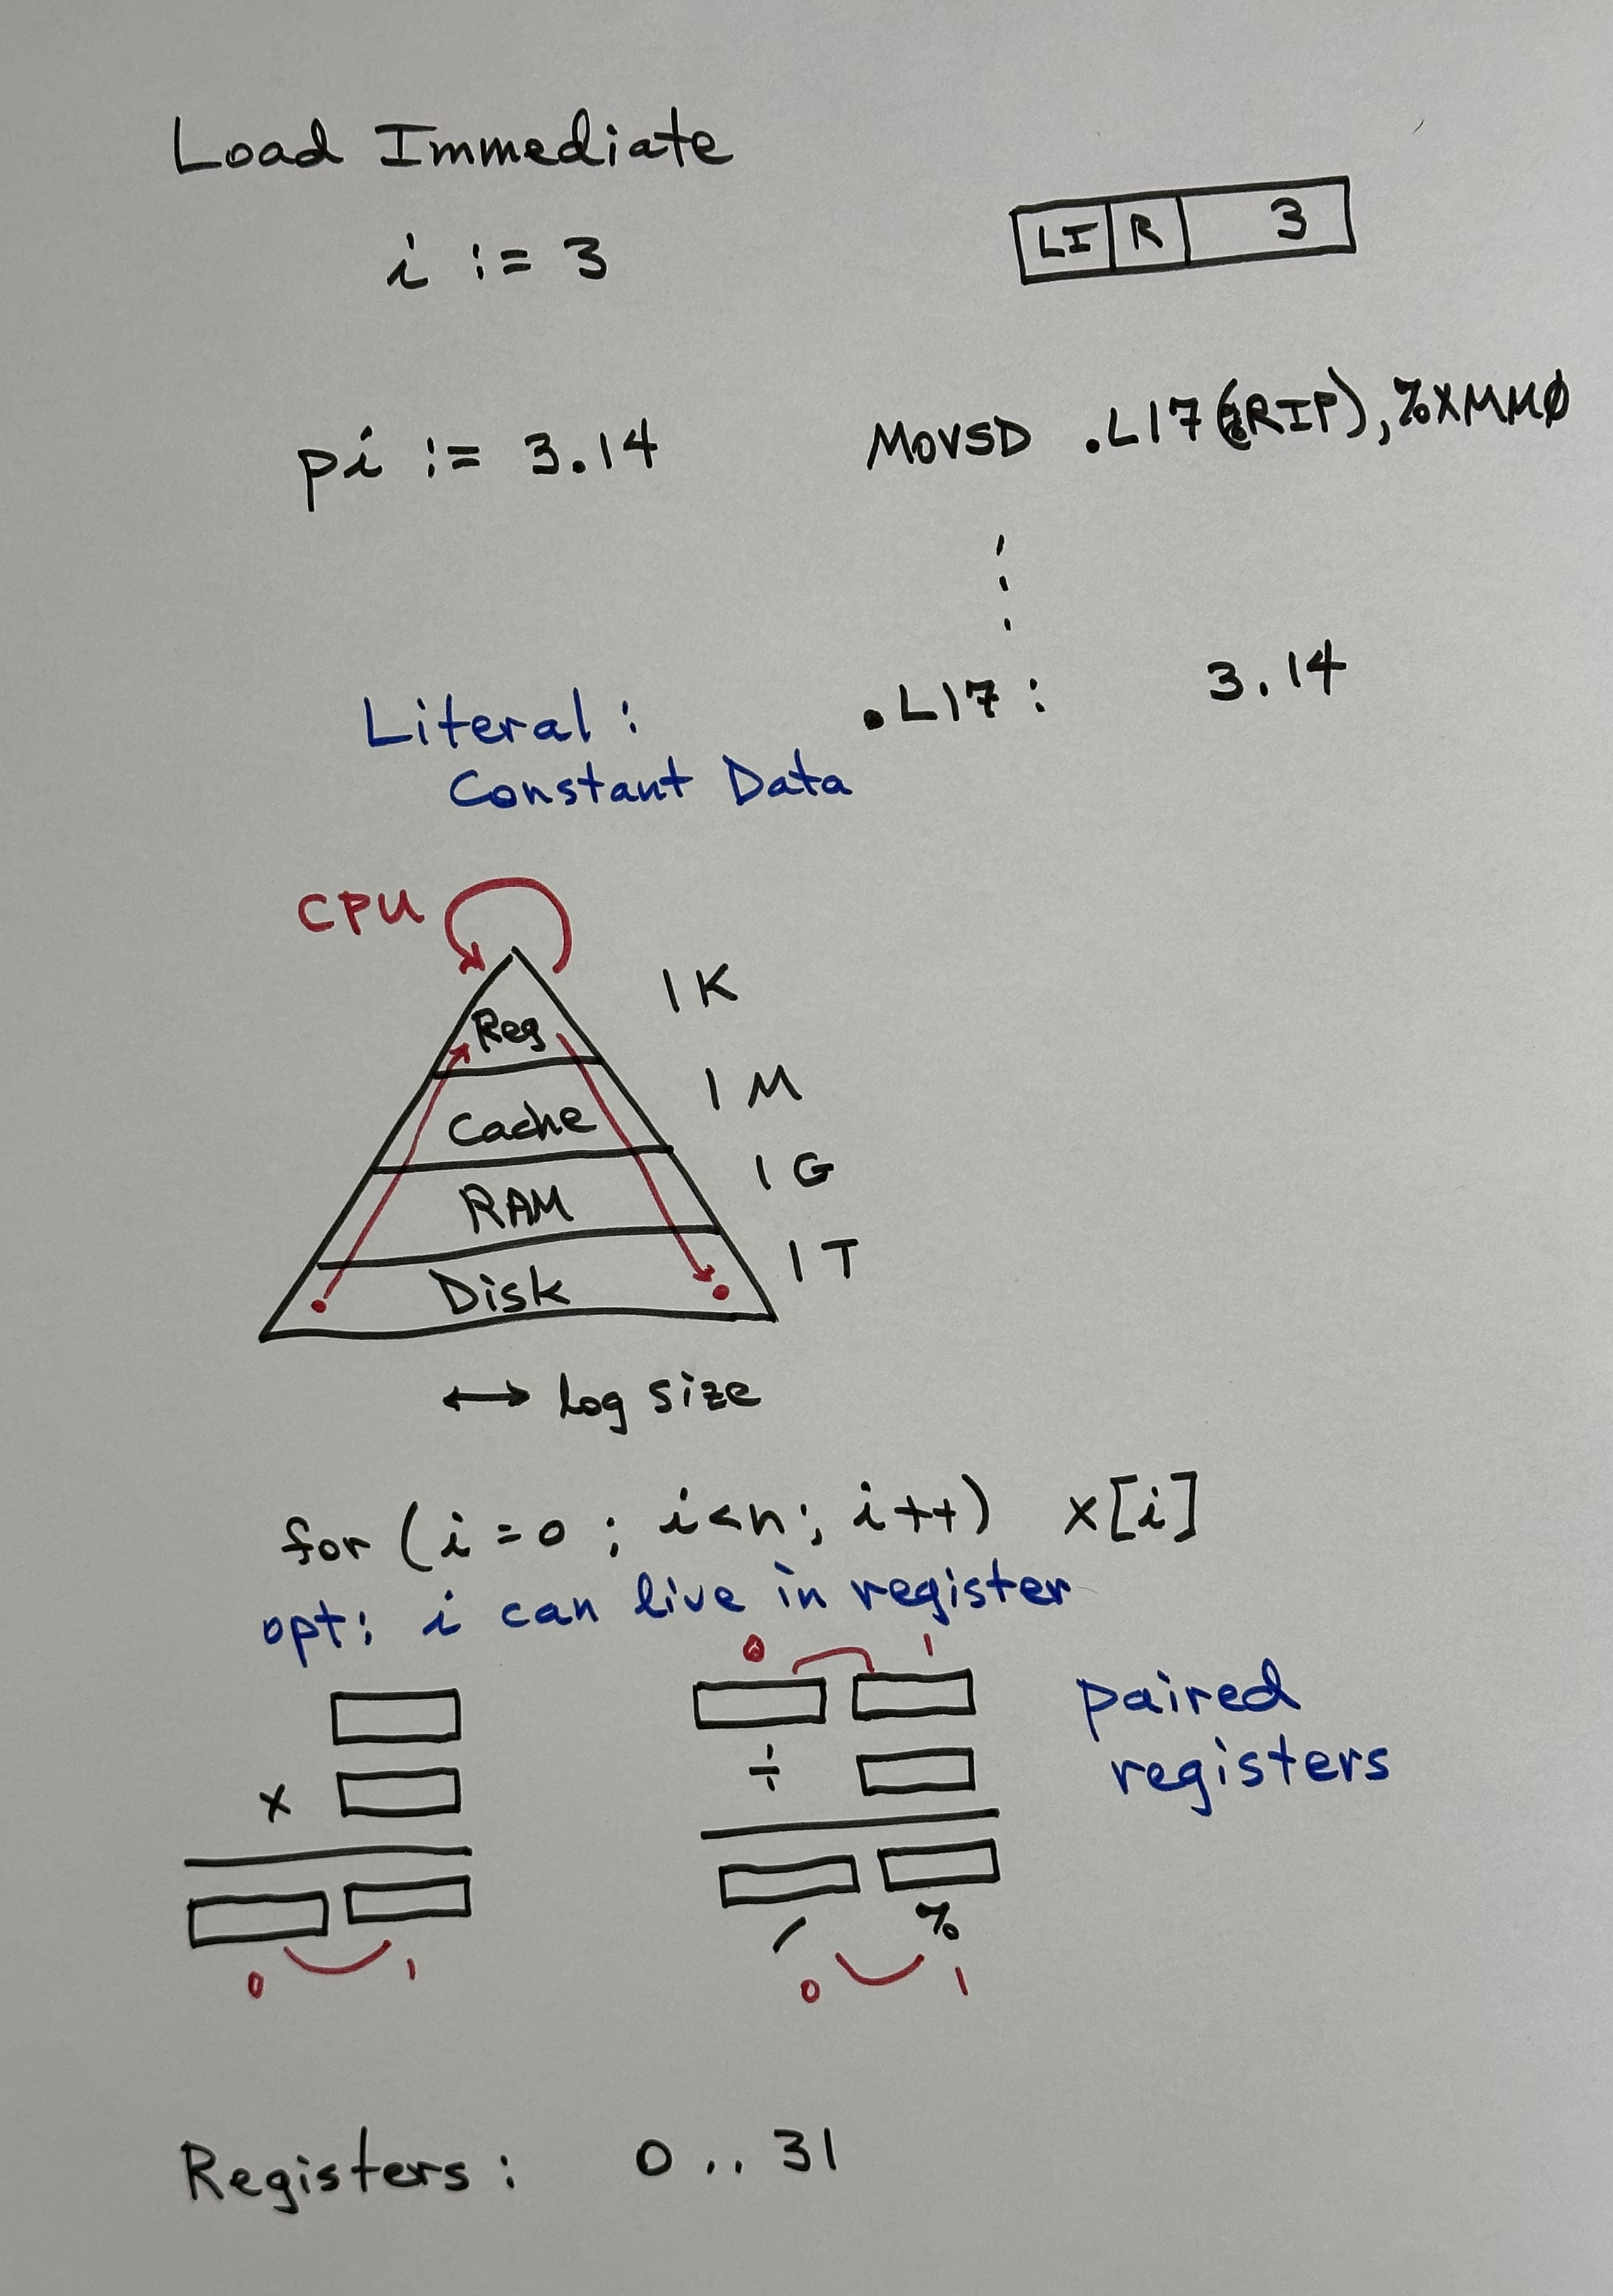 Load Immediate
i := 3
LI R 3
pi := 3.14
MOVSD .L17(%RIP),%XMM0
.L17: 3.14
Literal:
Constant Data
CPU
Reg 1K
Cache 1M
RAM 1G
Disk 1T
↔ log size
for (i=0; i<n; i++) x[i]
opt: i can live in register
0 1
paired
registers
x
÷
/ %
0 1
0 1
Registers: 0..31